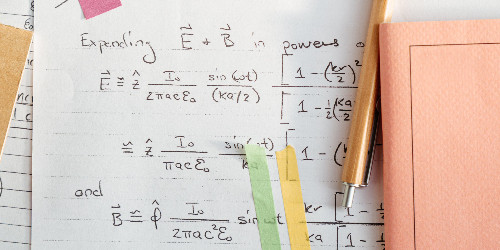 Expending E⃗ + B⃗ in powers
E⃗ ≅ ẑ I₀/(2πacε₀) sin(ωt)/(ka/2) [1 - (kr/2)²
[1 - ½(ka/2
≅ ẑ I₀/(πacε₀) sin(ωt)/ka [1 - (
and
B⃗ ≅ φ̂ I₀/(2πac²ε₀) sin ωt kr [1 -
ka [1 -